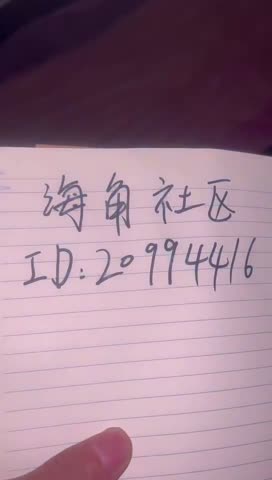 海角社区
ID:20994416